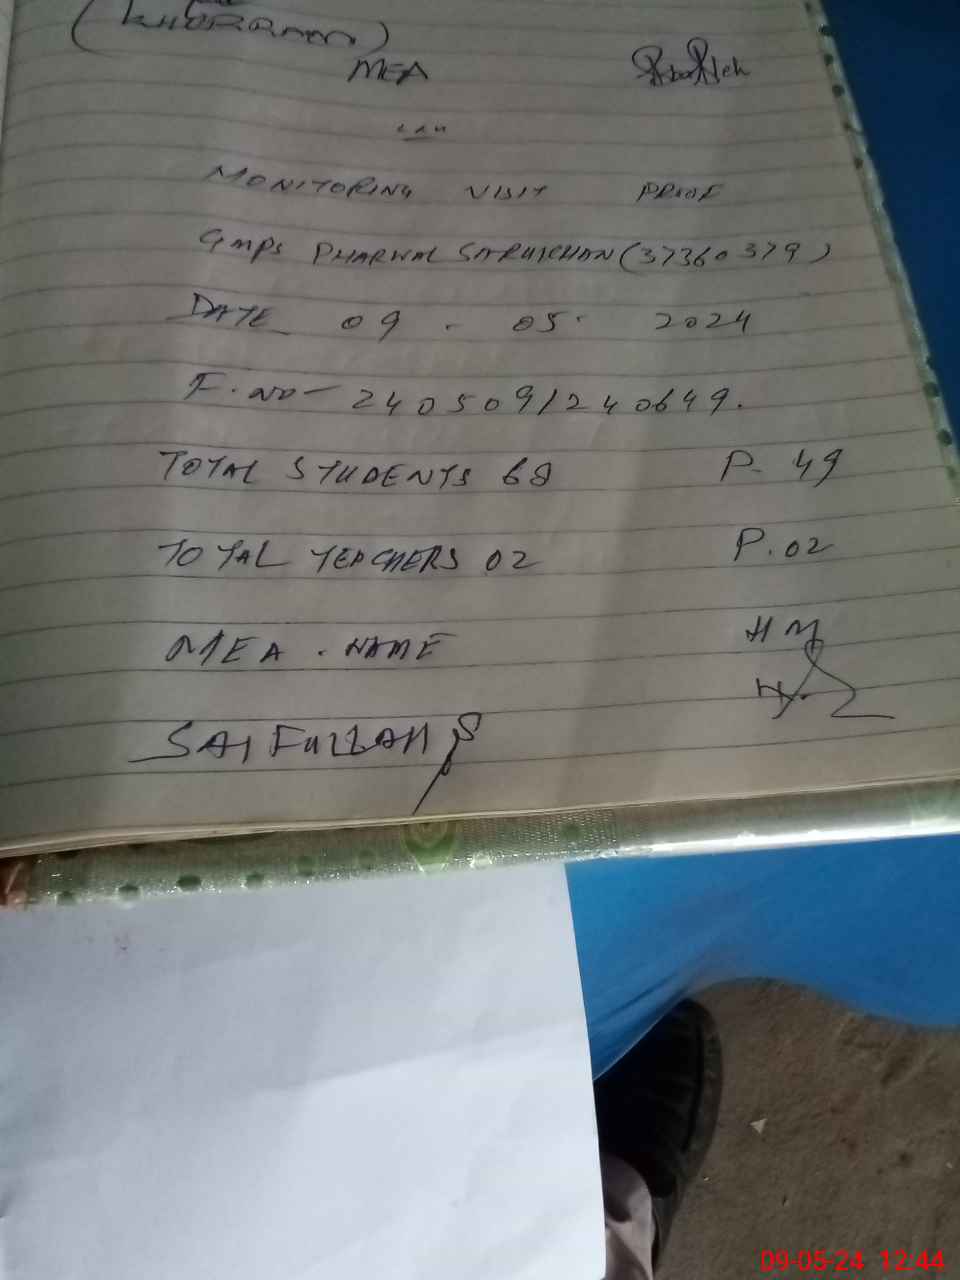 (KHURRAM)
MEA
MONITORING VISIT PROOF
GMPS PHARWAL SARUKHAN (37360379)
DATE 09 - 05 - 2024
F.NO - 2405091240649.
TOTAL STUDENTS 68 P- 49
TOTAL TEACHERS 02 P.02
MEA . NAME HM
SAIFULLAH
09-05-24 12:44